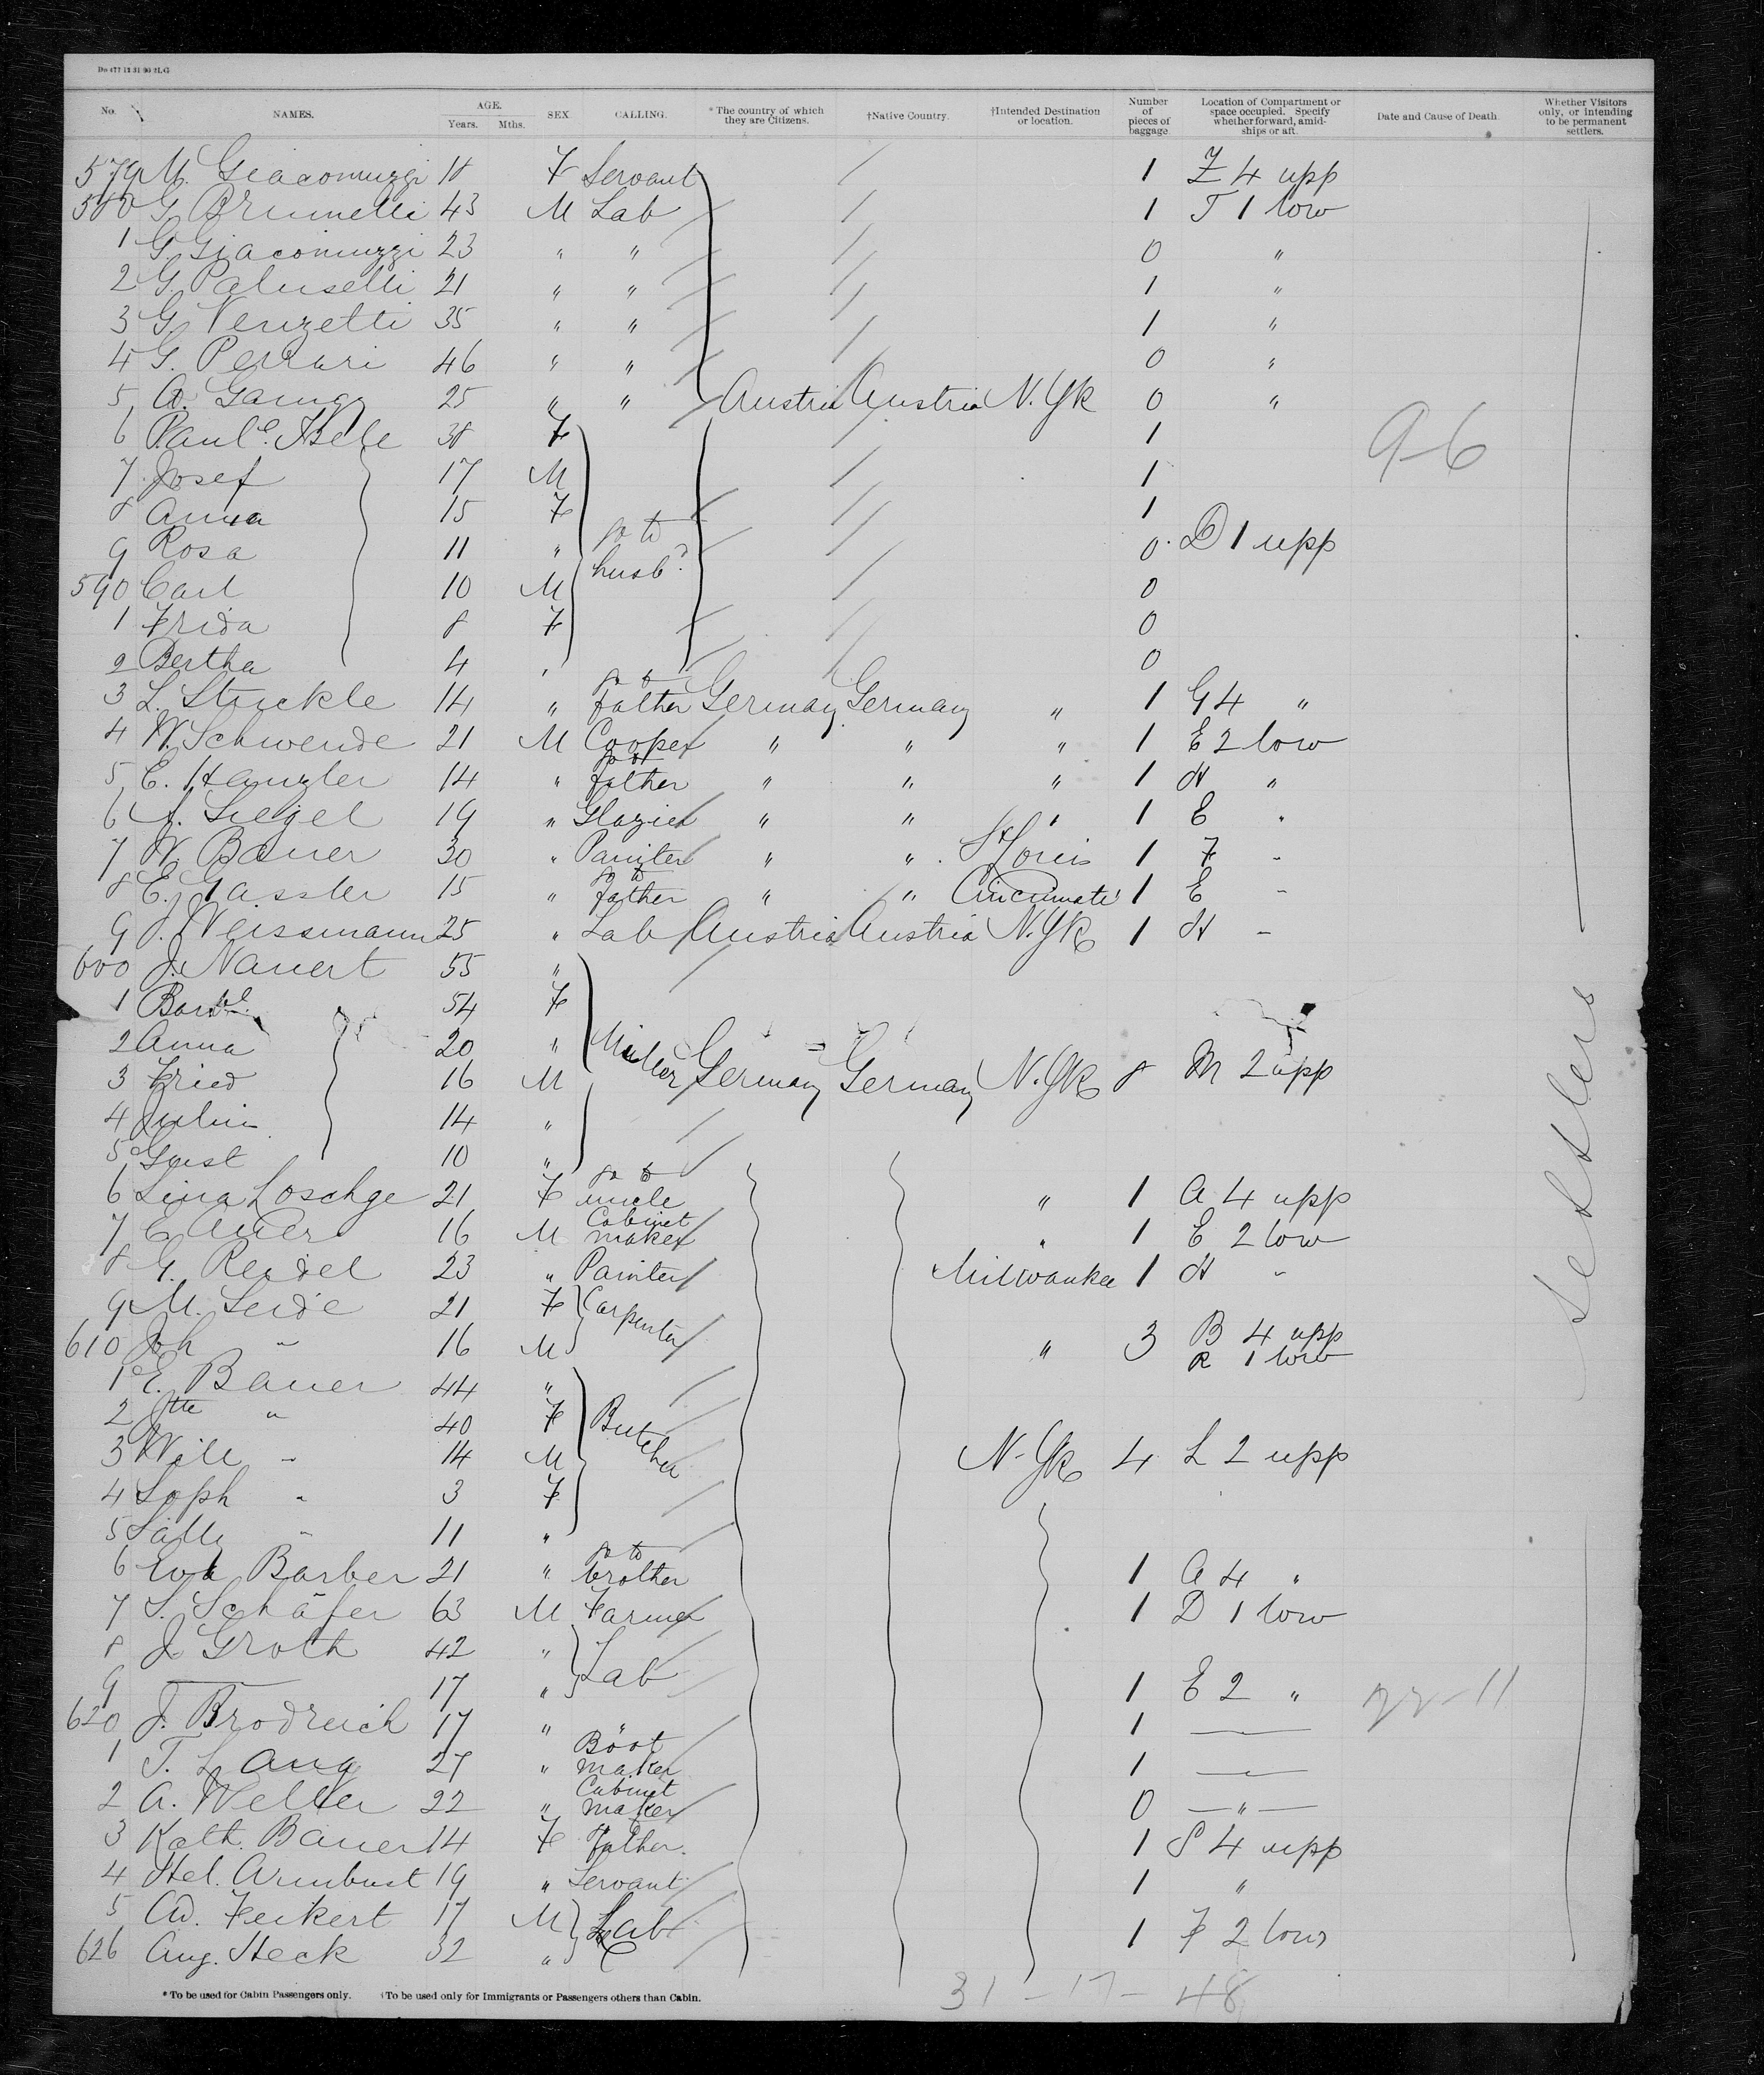 Do 477 12 31 90 2L G
No. NAMES. AGE. Years. Mths. SEX. CALLING. *The country of which they are Citizens. †Native Country. †Intended Destination or location. Number of pieces of baggage. Location of Compartment or space occupied. Specify whether forward, amidships or aft. Date and Cause of Death. Whether Visitors only, or intending to be permanent settlers.
579 M. Giacomuzzi 18 F Servant 1 Z 4 upp
580 G. Brunelli 43 M Lab 1 T 1 low
1 G. Giacomuzzi 23 " " 0 "
2 G. Paluselli 21 " " 1 "
3 G. Venzetti 35 " " 1 "
4 G. Ferrari 46 " " 0 "
5 25 " " Austria Austria N.Yk 0 "
6 38 F 1
7 Josef 17 M 1 96
8 Anna 15 F 1
9 Rosa 11 " go to husbd 0 D 1 upp
590 Carl 10 M 0
1 Frida 8 F 0
2 Bertha 4 " 0
3 L. Stuckle 14 " go to father Germany Germany " 1 G 4 "
4 W. Schwende 21 M Cooper " " " 1 E 2 low
5 E. Hanzler 14 " go to father " " " 1 H "
6 J. Siegel 19 " Glazier " " " 1 E "
7 W. Bauer 30 " Painter " " St Louis 1 F "
8 E. Gassler 15 " go to father " " Cincinnati 1 E "
9 J. Weissmann 25 " Lab Austria Austria N.Yk 1 H "
600 J. Nauert 55 "
1 54 F
2 Anna 20 "
3 Fried 16 M Miller Germany Germany N.Yk 8 M 2 upp
4 14 "
5 Gust 10 "
6 Lina Loschge 21 F go to uncle " 1 A 4 upp
7 E. Auer 16 M Cabinet maker " 1 E 2 low
8 G. Reidel 23 " Painter Milwaukee 1 H "
9 M. Seide 21 F Carpenter
610 Joh " 16 M " 3 B 4 upp R 1 low
1 E. Bauer 44 "
2 Jtte " 40 F Butcher
3 Will " 14 M N.Yk 4 L 2 upp
4 Soph " 3 F
5 " 11 "
6 Eva Barber 21 " go to brother 1 A 4 "
7 S. Schäfer 63 M Farmer 1 D 1 low
8 J. Groth 42 " Lab
9 — 17 " 1 E 2 "
620 J. Brodreich 17 " 1 —
1 T. Lang 27 " Boot maker 1 —
2 A. Weller 22 " Cabinet maker 0 — " —
3 Kath. Bauer 14 F father 1 S 4 upp
4 Hel. Armbust 19 " Servant 1 "
5 Ad. Feikert 17 M Lab 1 F 2 low
626 Aug. Heck 32 "
settlers
31 - 17 - 48
*To be used for Cabin Passengers only. †To be used only for Immigrants or Passengers others than Cabin.